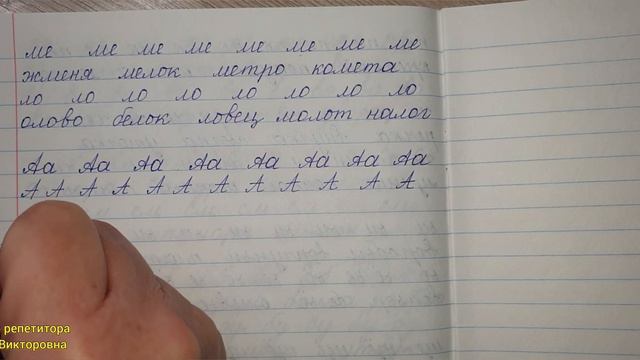 ме ме ме ме ме ме ме ме
жменя мелок метро комета
ло ло ло ло ло ло ло ло
олово белок ловец молот налог
Аа Аа Аа Аа Аа Аа Аа Аа
А А А А А А А А А А А А
репетитора
Викторовна